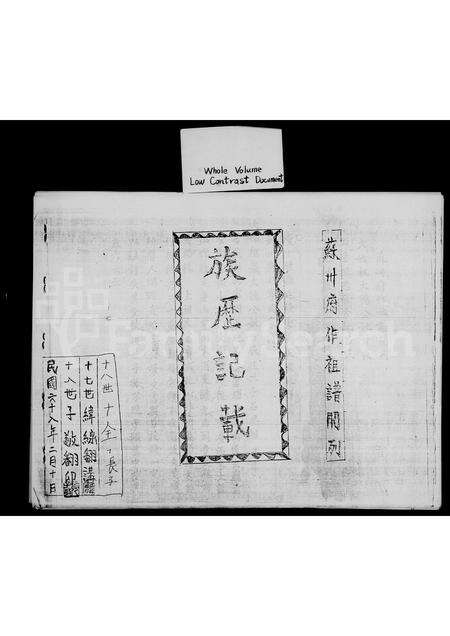 Whole Volume
Low Contrast Document
蘇州府作祖譜開列
族歷記載
十八世
長子
十七世緯綸翻
十八世子敬翻
民國六十八年二月十日
FamilySearch